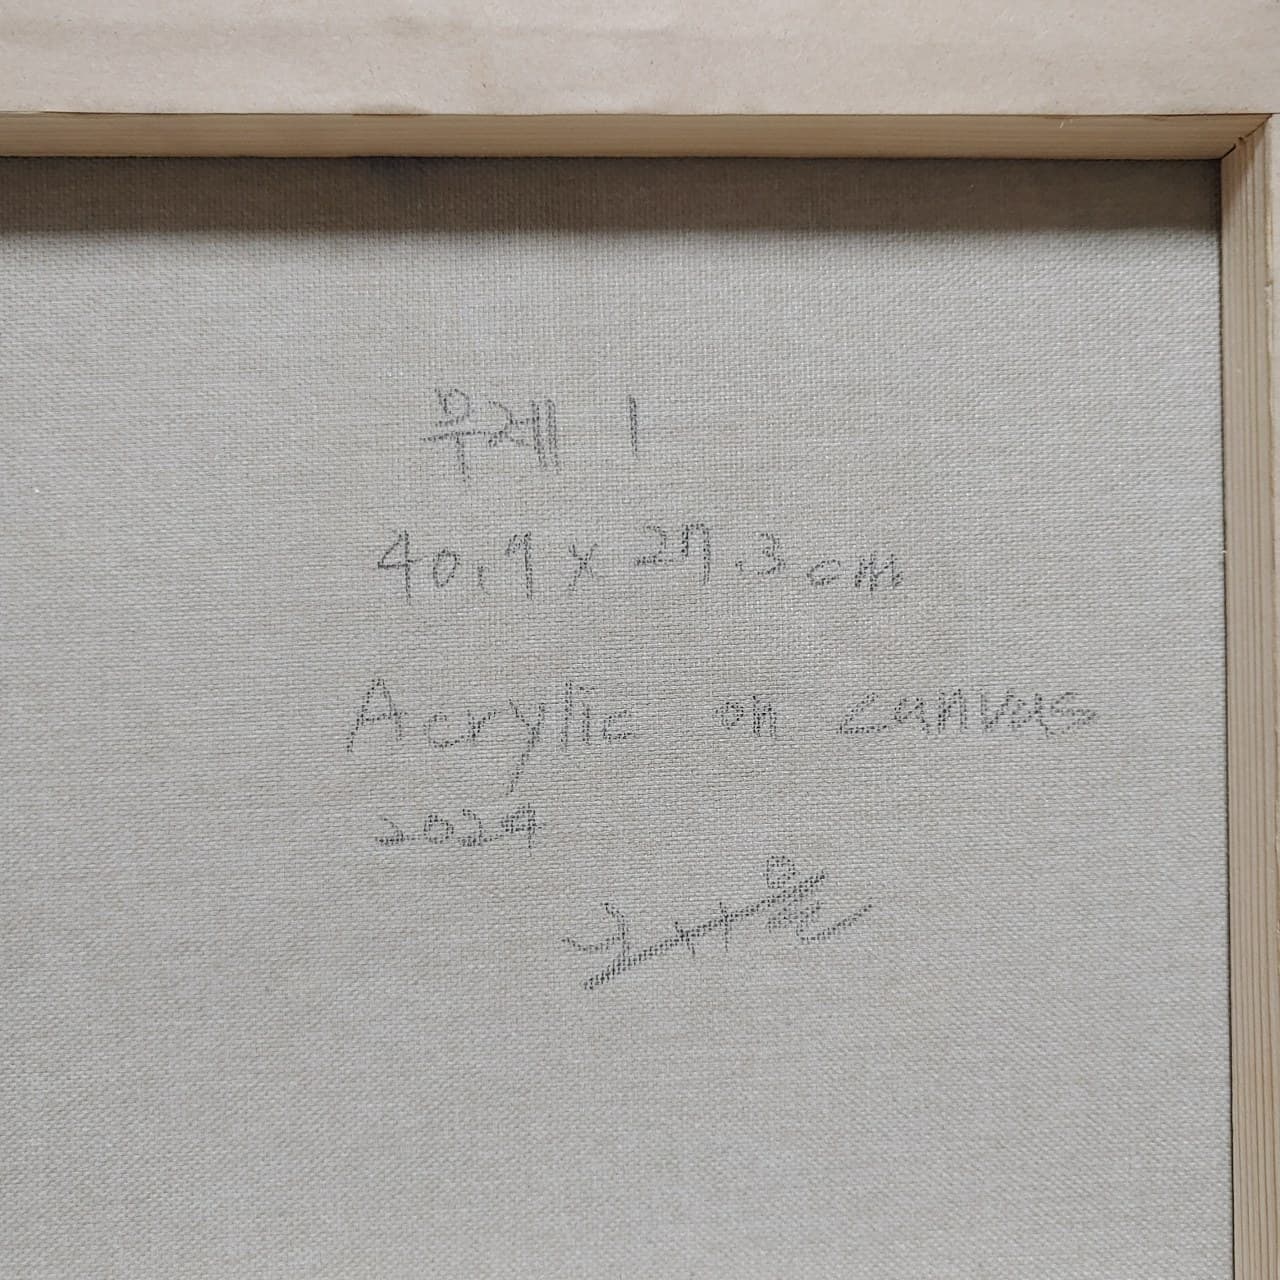 무제 1
40.9 x 27.3 cm
Acrylic on canvas
2024